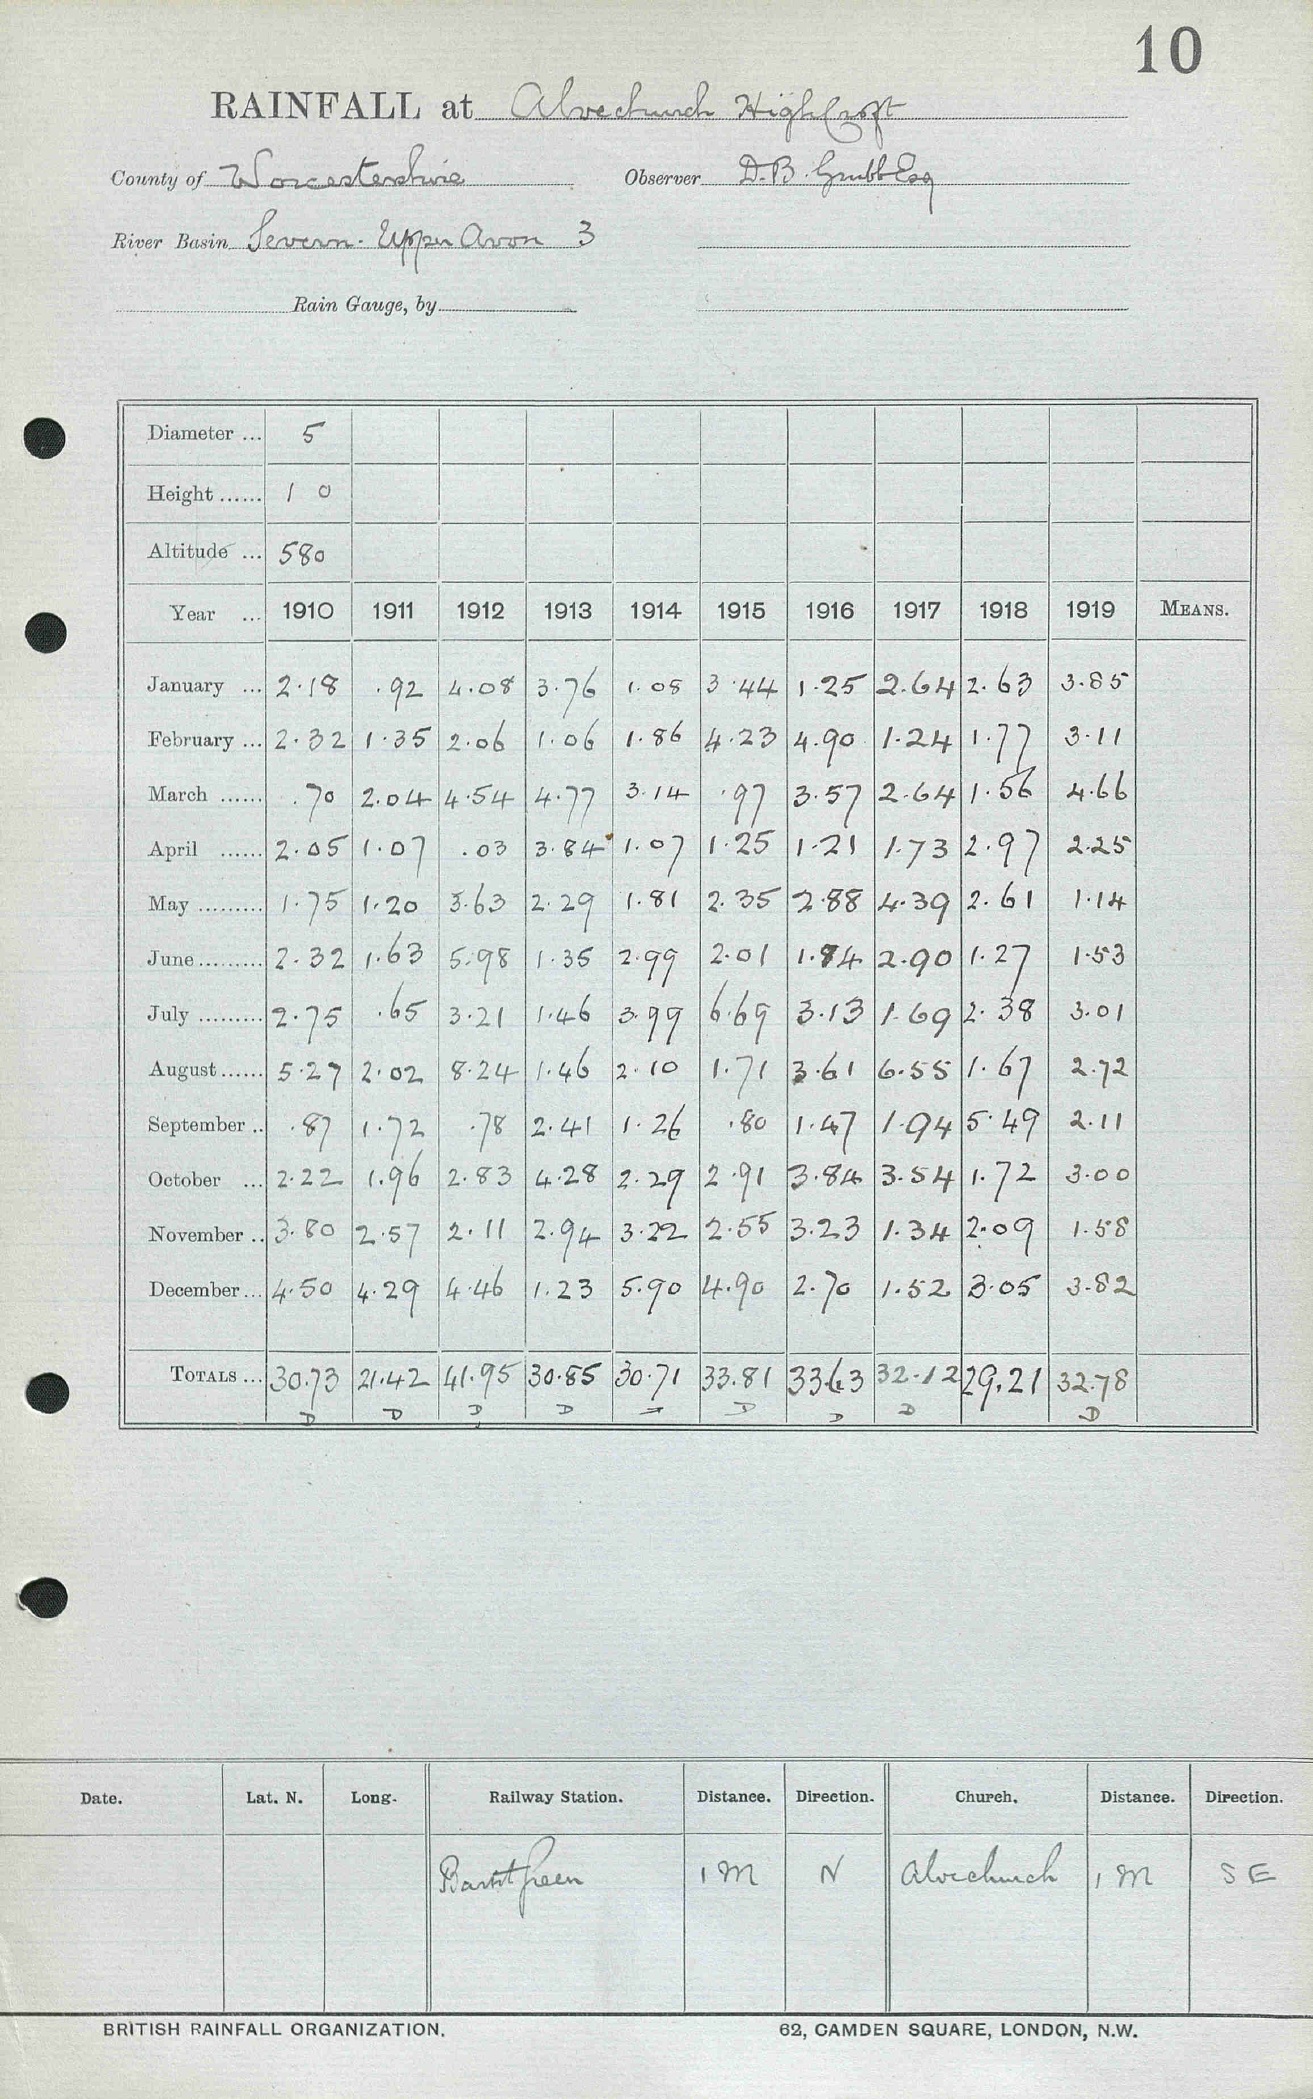 10
RAINFALL at Alvechurch Highcroft
County of Worcestershire Observer D. B. Grubb Esq
River Basin Severn. Upper Avon 3
Rain Gauge, by
Diameter ... 5
Height ...... 1 0
Altitude ... 580
Year ... 1910 1911 1912 1913 1914 1915 1916 1917 1918 1919 MEANS.
January ... 2.18 .92 4.08 3.76 1.08 3.44 1.25 2.64 2.63 3.85
February ... 2.32 1.35 2.06 1.06 1.86 4.23 4.90 1.24 1.77 3.11
March ...... .70 2.04 4.54 4.77 3.14 .97 3.57 2.64 1.56 4.66
April ...... 2.05 1.07 .03 3.84 1.07 1.25 1.21 1.73 2.97 2.25
May ......... 1.75 1.20 3.63 2.29 1.81 2.35 2.88 4.39 2.61 1.14
June ......... 2.32 1.63 5.98 1.35 2.99 2.01 1.84 2.90 1.27 1.53
July ......... 2.75 .65 3.21 1.46 3.99 6.69 3.13 1.69 2.38 3.01
August ...... 5.27 2.02 8.24 1.46 2.10 1.71 3.61 6.55 1.67 2.72
September .. .87 1.72 .78 2.41 1.26 .80 1.47 1.94 5.49 2.11
October ... 2.22 1.96 2.83 4.28 2.29 2.91 3.84 3.54 1.72 3.00
November .. 3.80 2.57 2.11 2.94 3.22 2.55 3.23 1.34 2.09 1.58
December ... 4.50 4.29 4.46 1.23 5.90 4.90 2.70 1.52 3.05 3.82
TOTALS ... 30.73 21.42 41.95 30.85 30.71 33.81 33.63 32.12 29.21 32.78
D D D D D D D D
Date. Lat. N. Long. Railway Station. Distance. Direction. Church. Distance. Direction.
Barnt Green 1 M N Alvechurch 1 M S E
BRITISH RAINFALL ORGANIZATION. 62, CAMDEN SQUARE, LONDON, N.W.